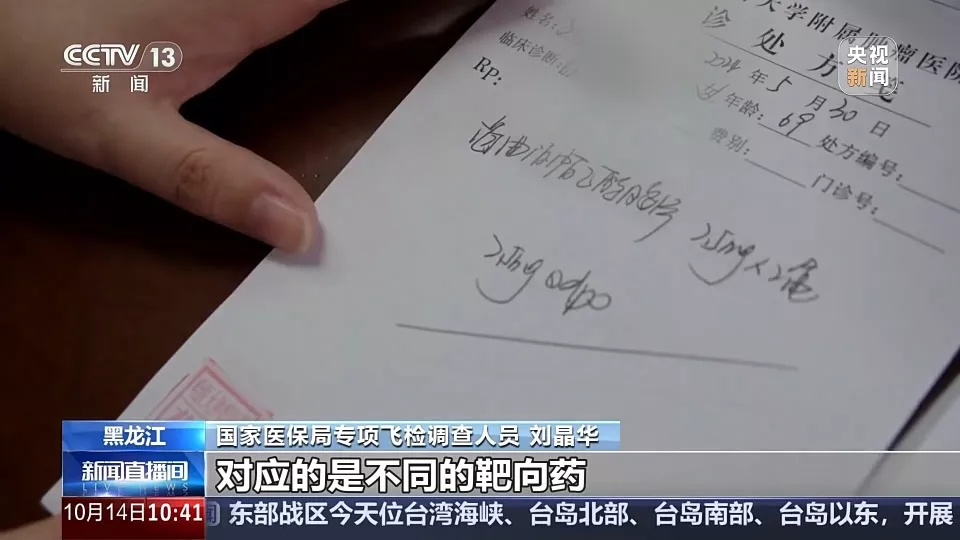 CCTV 13
新闻
央视
新闻
大学附属肿瘤医院
诊处方笺
姓名:
临床诊断:
2024年5月30日
女 年龄: 69 处方编号:
费别: 门诊号:
Rp:
25mg x 2盒
25mg qd po
黑龙江
国家医保局专项飞检调查人员 刘晶华
新闻直播间
LIVE NEWS
对应的是不同的靶向药
10月14日10:41
东部战区今天位台湾海峡、台岛北部、台岛南部、台岛以东,开展